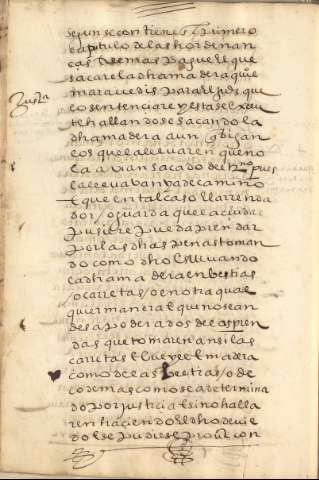 segun se contiene en el primero
capitulo de las hordenan
ças demas pague el que
sacare la dha madera que
maravedis para el juez que
Justa
lo sentenciare y esta se exsecu
te hallandose sacando la
dha madera aun que digan
los que la llevaren que no
la avian sacado del pues
la llevavan de camino
e que en tal caso el arrenda
dor / o guarda que a ello
pusiere pueda prendar
por las dhas penas toman
do como dho es llevando
la dha madera en bestias
o carretas / o en otra qual
quier manera e que no sean
desapoderados de las pren
das que tomaren ansi las
carretas e bueyes e madera
como de las bestias / o de
lo demas como se a determina
do por justicia e si no halla
ren haciendo el dho
do se pudiese con